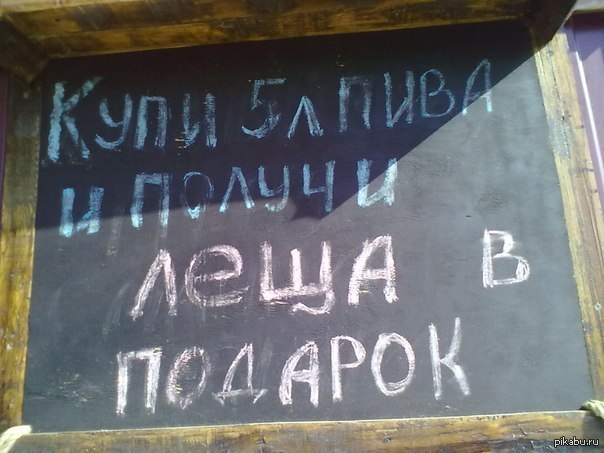 Купи 5л ПИВА
и получи
леща в
ПОДАРОК
pikabu.ru